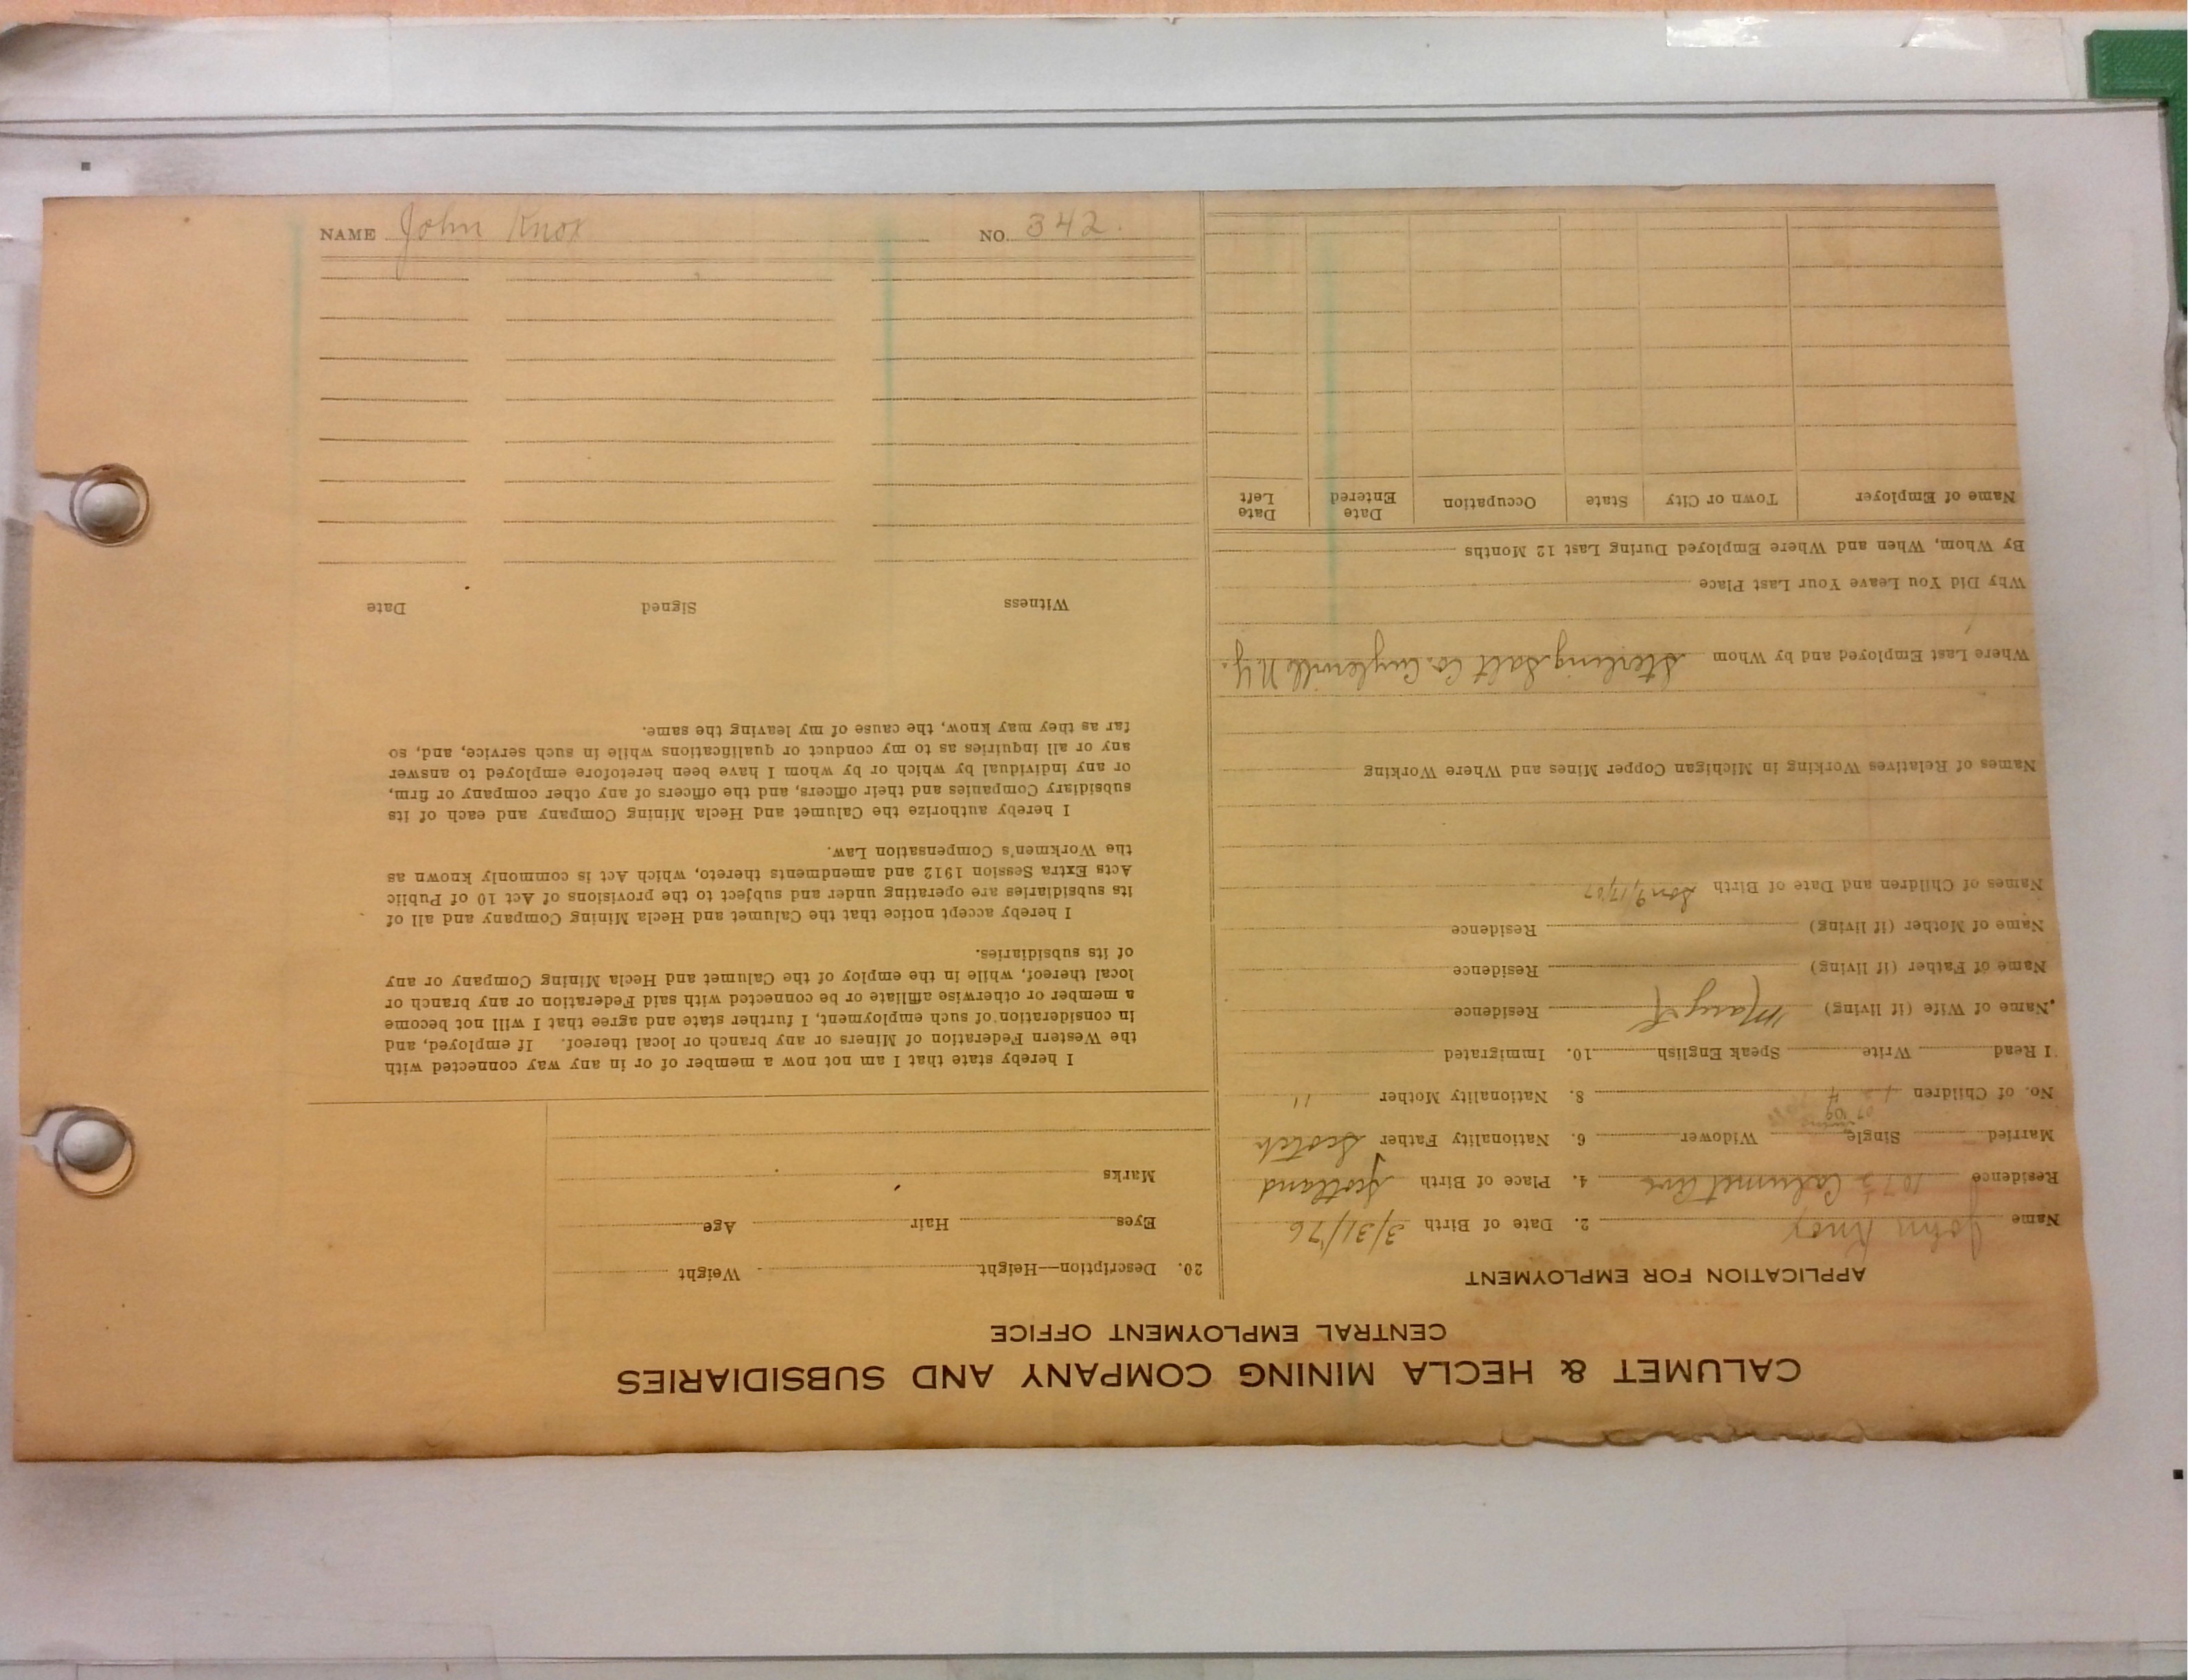 CALUMET & HECLA MINING COMPANY AND SUBSIDIARIES
CENTRAL EMPLOYMENT OFFICE
APPLICATION FOR EMPLOYMENT
Name John Knox 2. Date of Birth 3/31/76
Residence Calumet Ave 4. Place of Birth Scotland
Married Single Widower 6. Nationality Father Scotch
No. of Children 8. Nationality Mother "
I Read Write Speak English 10. Immigrated
Name of Wife (if living) Mary Residence
Name of Father (if living) Residence
Name of Mother (if living) Residence
Names of Children and Date of Birth Son
Names of Relatives Working in Michigan Copper Mines and Where Working
Where Last Employed and by Whom Sterling Salt Co. Cuylerville N.Y.
Why Did You Leave Your Last Place
By Whom, When and Where Employed During Last 12 Months
Name of Employer Town or City State Occupation Date Entered Date Left
20. Description—Height Weight
Eyes Hair Age
Marks
I hereby state that I am not now a member of or in any way connected with
the Western Federation of Miners or any branch or local thereof. If employed, and
in consideration of such employment, I further state and agree that I will not become
a member or otherwise affiliate or be connected with said Federation or any branch or
local thereof, while in the employ of the Calumet and Hecla Mining Company or any
of its subsidiaries.
I hereby accept notice that the Calumet and Hecla Mining Company and all of
its subsidiaries are operating under and subject to the provisions of Act 10 of Public
Acts Extra Session 1912 and amendments thereto, which Act is commonly known as
the Workmen's Compensation Law.
I hereby authorize the Calumet and Hecla Mining Company and each of its
subsidiary Companies and their officers, and the officers of any other company or firm,
or any individual by which or by whom I have been heretofore employed to answer
any or all inquiries as to my conduct or qualifications while in such service, and, so
far as they may know, the cause of my leaving the same.
Witness Signed Date
NAME John Knox NO. 342.